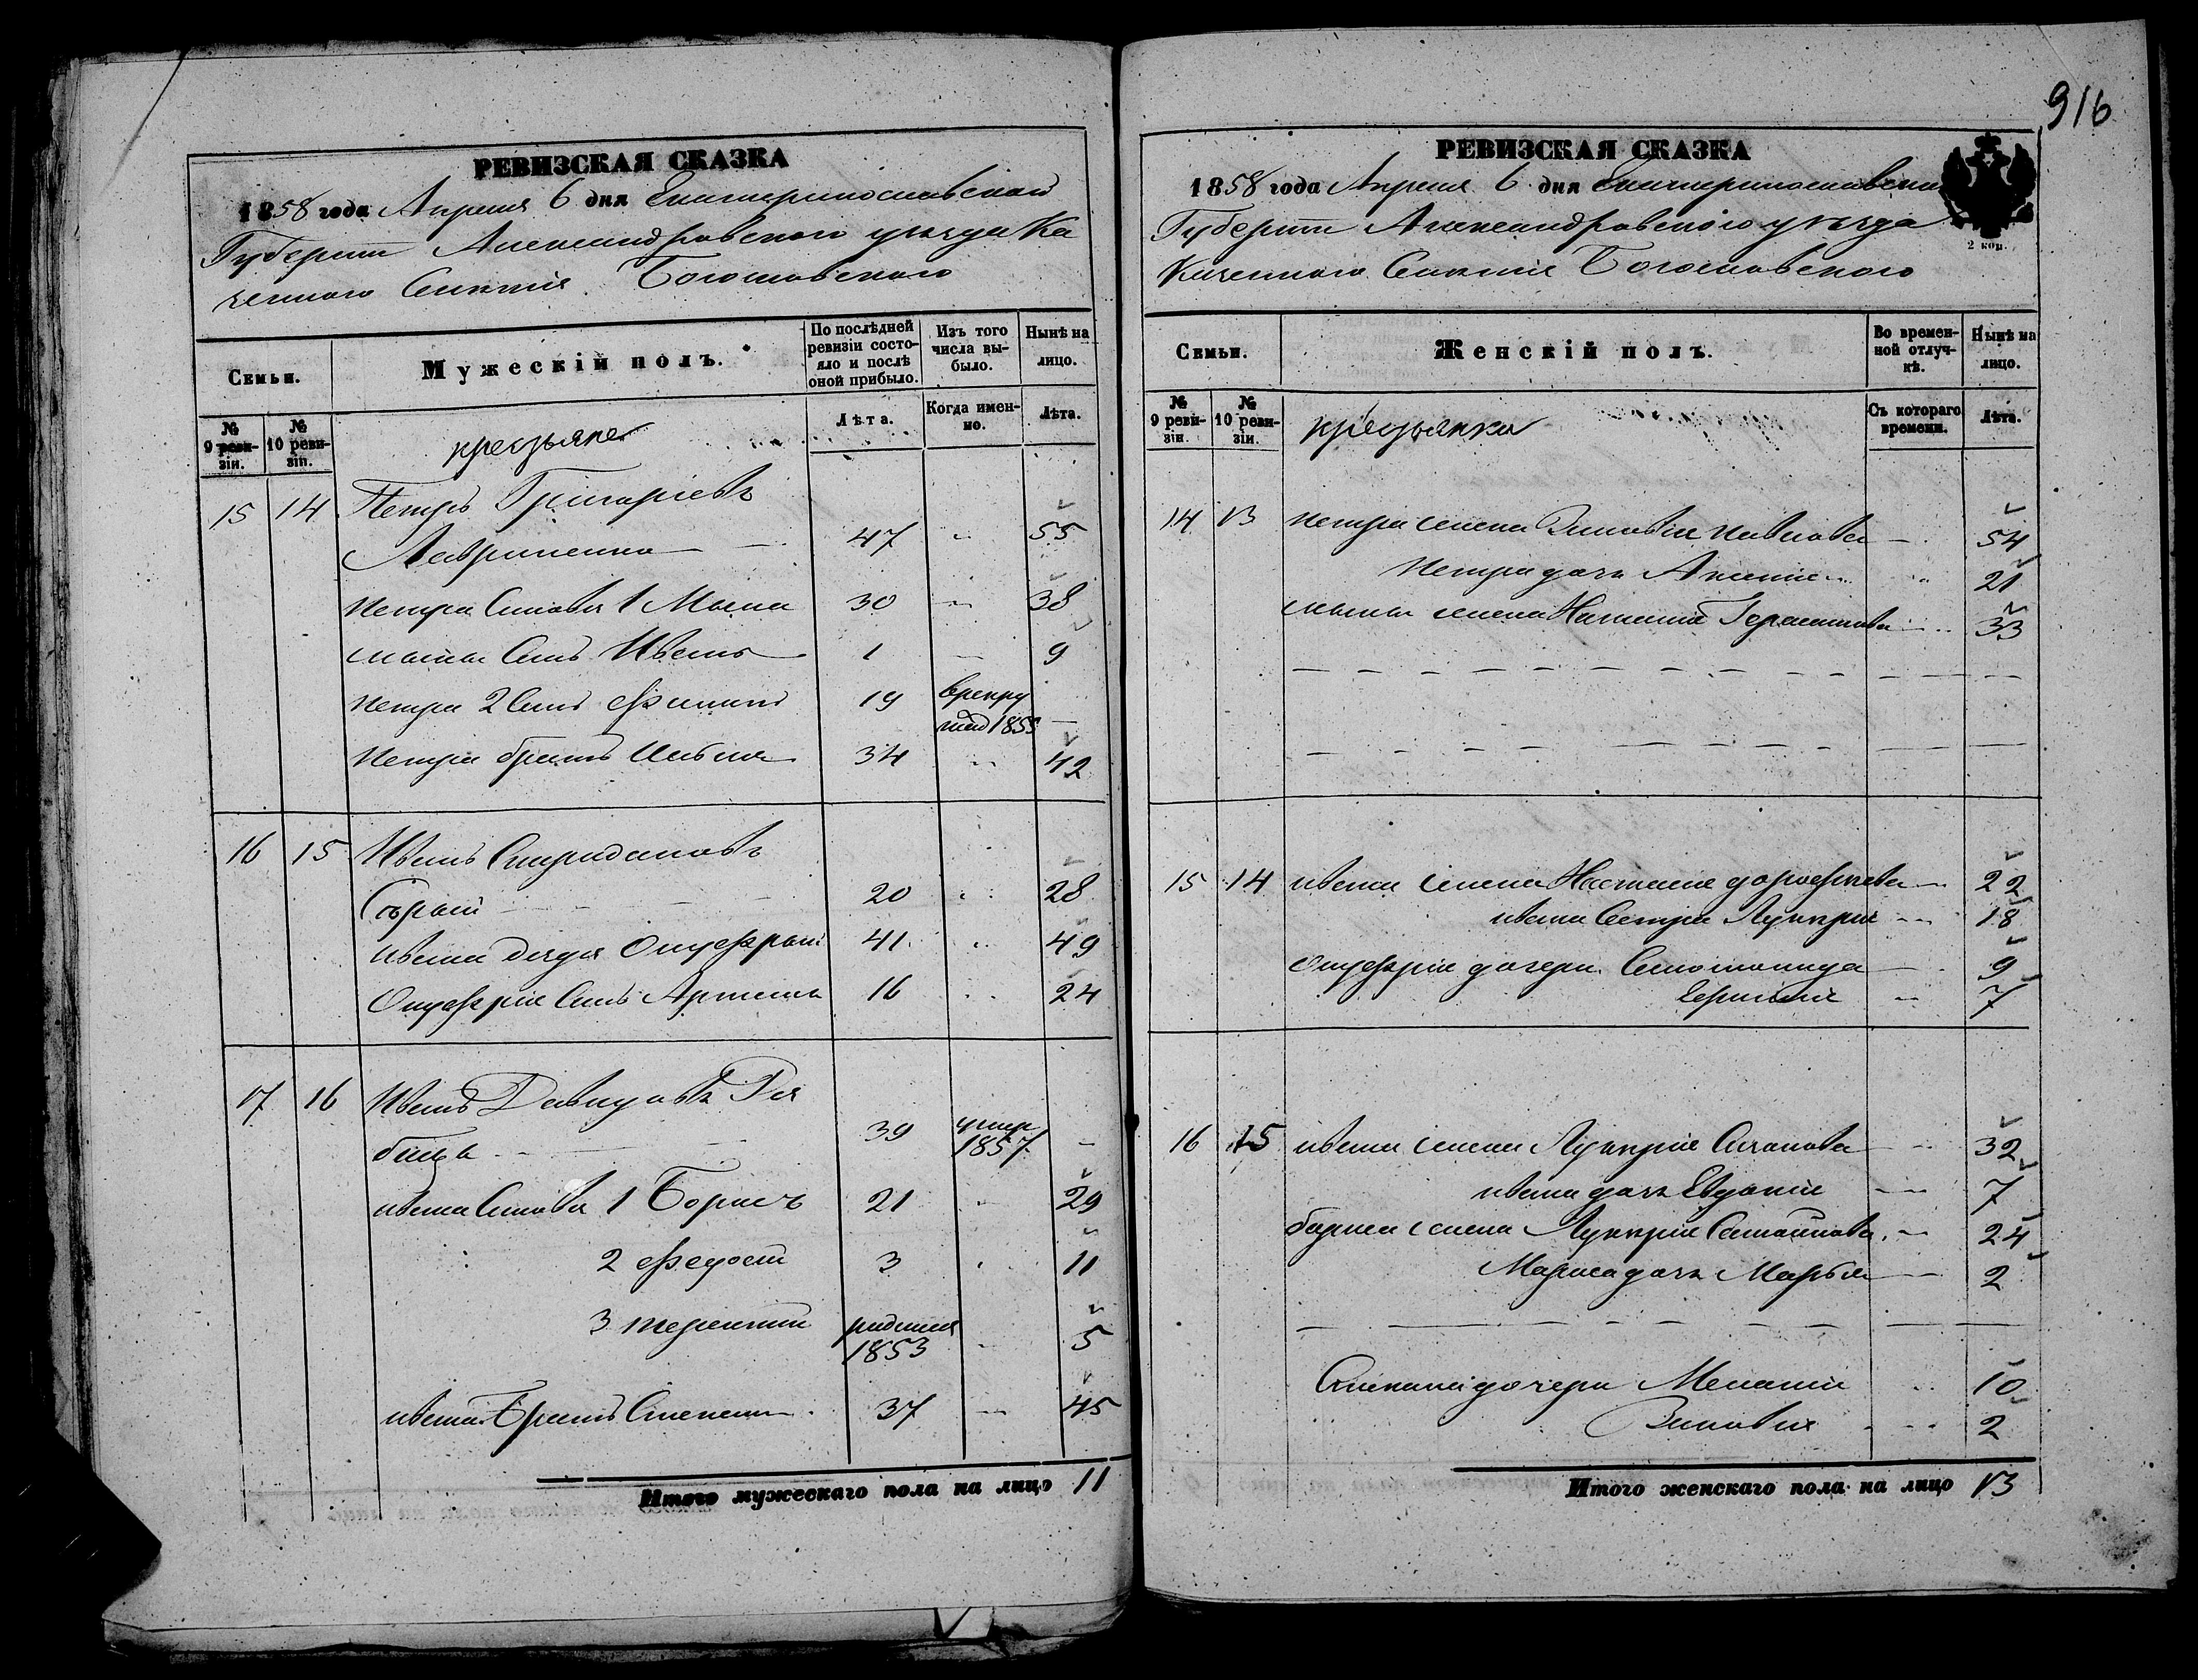 РЕВИЗСКАЯ СКАЗКА
1858 года Апреля 6 дня Екатеринославской
Губернии Александровского уезда Ка
зенного Селения Богословского
Семьи.
Мужескій полъ.
По послѣдней ревизіи состояло и послѣ оной прибыло.
Изъ того числа выбыло.
Нынѣ на лицо.
№ 9 ревизіи.
№ 10 ревизіи.
крестьяне
Лѣта.
Когда именно.
Лѣта.
15 14 Петръ Григоріевъ
Лавриненко 47 55
Петра Сыновья 1 30 38
Сынъ Иванъ 1 9
Петра 2 Сынъ Филипъ 19 в рекру 1855
Петра братъ 34 42
16 15 Иванъ Спиридоновъ
Сѣрый 20 28
Ивана дядя Онуфрій 41 49
Онуфрія Сынъ Артемъ 16 24
17 16 Иванъ Давидовъ Ря
бица 39 умер 1857 -
Ивана Сыновья 1 Борисъ 21 29
2 Федосій 3 11
3 Терентий родился 1853 5
Ивана Братъ Степанъ 37 45
Итого мужескаго пола на лицо 11
916
РЕВИЗСКАЯ СКАЗКА
1858 года Апреля 6 дня Екатеринославской
Губернии Александровского уезда
Казенного Селения Богословского
2 коп.
Семьи.
Женскій полъ.
Во временной отлучкѣ.
Нынѣ на лицо.
№ 9 ревизіи.
№ 10 ревизіи.
крестьянки
Съ котораго времени.
Лѣта.
14 13 Петра жена Зиновія Павлова 54
Петра дочь Аксенія 21
жена Наталія Герасимова 33
15 14 Ивана жена Настасия Дорофеева 22
Ивана Сестра Лукерія 18
Онуфрія дочери 9
7
16 15 Ивана жена Лукерія 32
Ивана дочь Евдокія 7
Бориса жена Лукерія 24
дочь Марья 2
Степана дочери Меланія 10
Зиновія 2
Итого женскаго пола на лицо 13